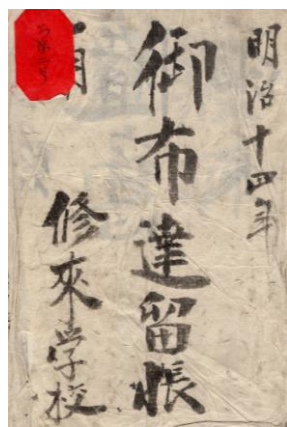 明治十四年
御布達留帳
一月
修來学校